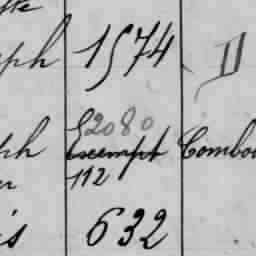 ph 1574 D
2080
ph exempt Combo
er 112
is 632